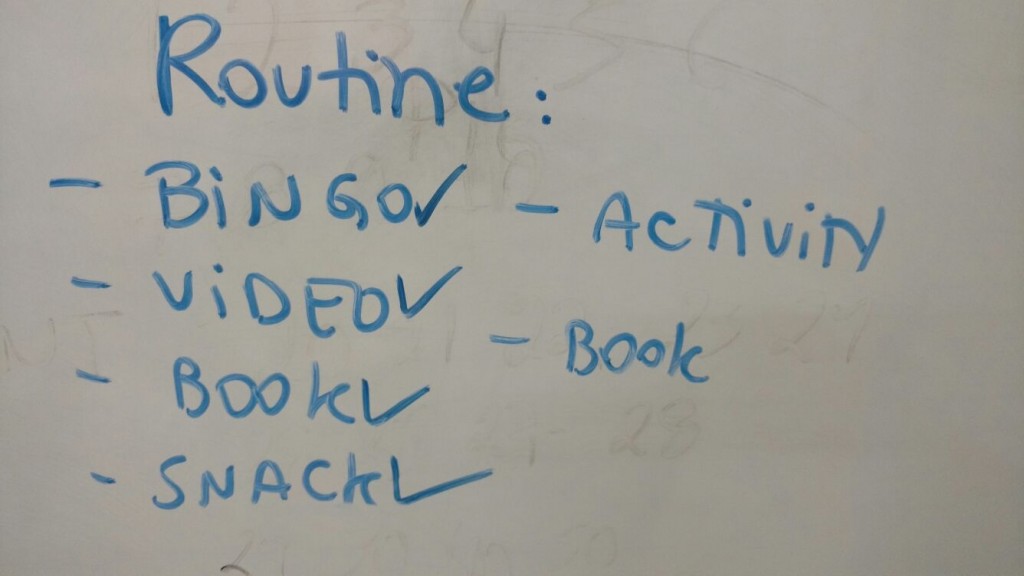 Routine:
- BiNGO✓
- ViDEO✓
- BOOK✓
- SNACK✓
- ACTiViTY
- BOOK